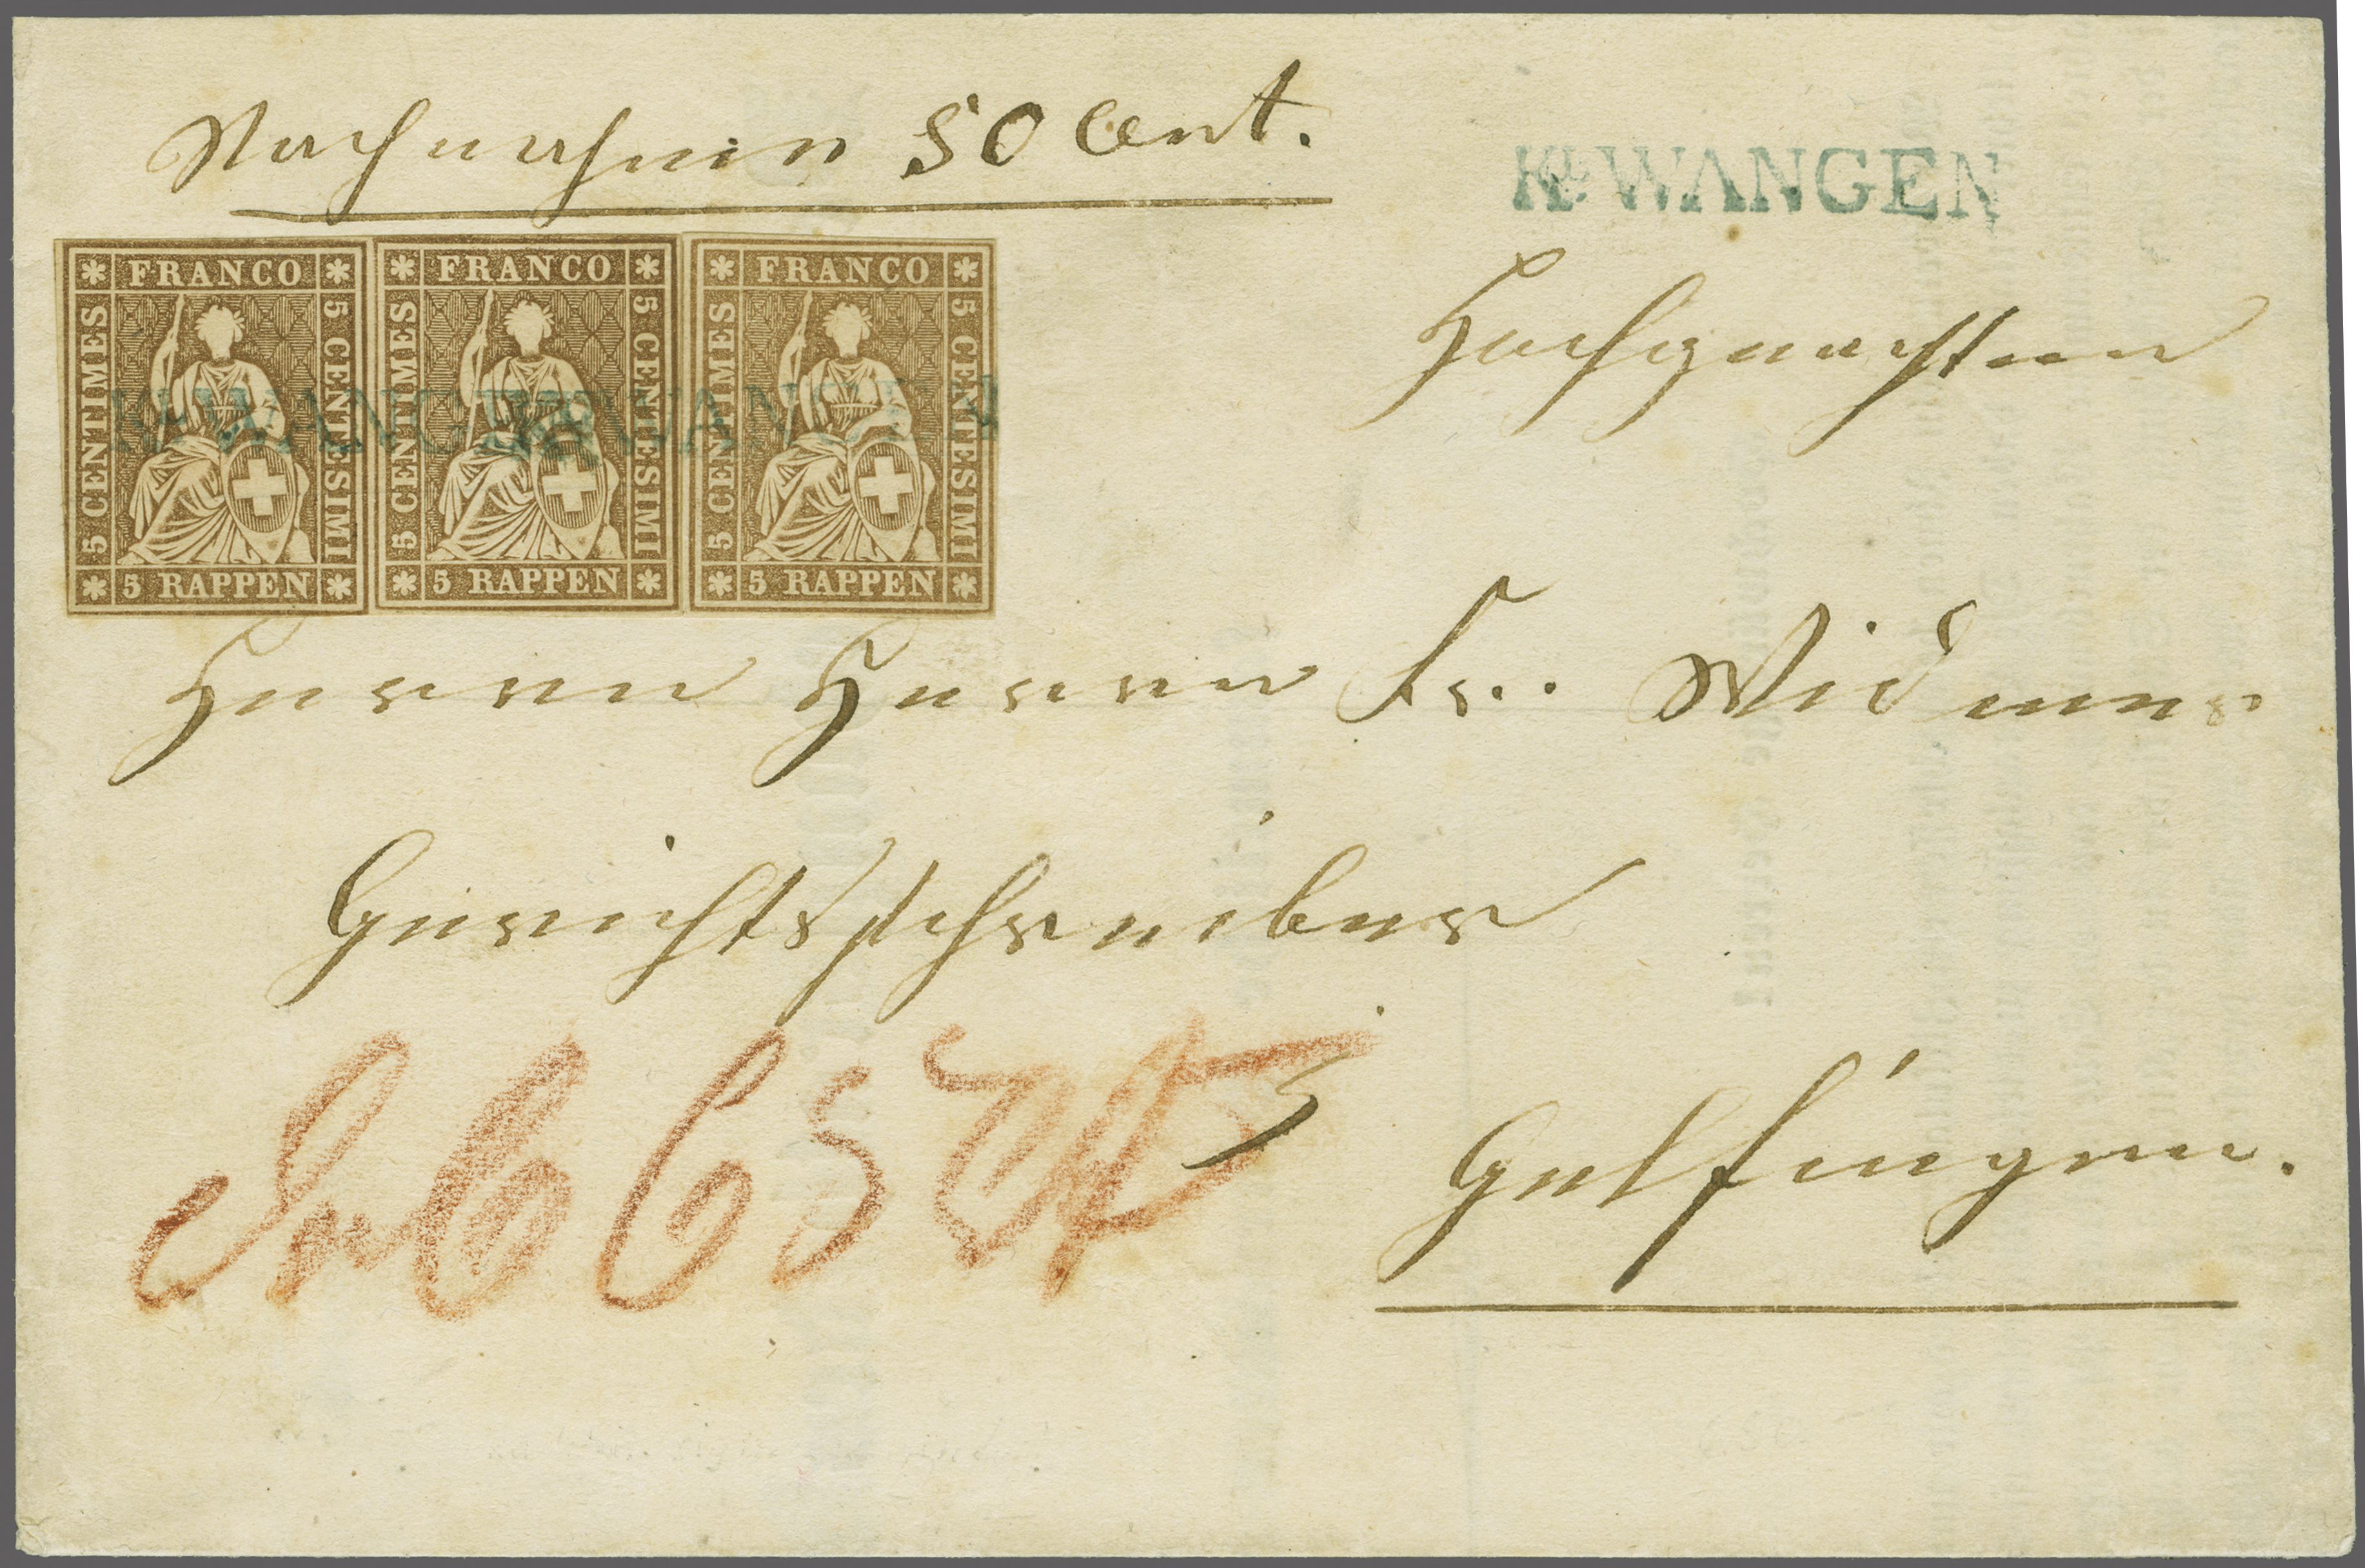 Nachnahme 50 Cent.
Kl. WANGEN
FRANCO
5 CENTIMES
5 CENTESIMI
5 RAPPEN
FRANCO
5 CENTIMES
5 CENTESIMI
5 RAPPEN
FRANCO
5 CENTIMES
5 CENTESIMI
5 RAPPEN
Kl. WANGEN
WANGEN
Hochgeachten
Herren Herren Fr.. Widmer
Gerichtsschreiber
65
Gelfingen.